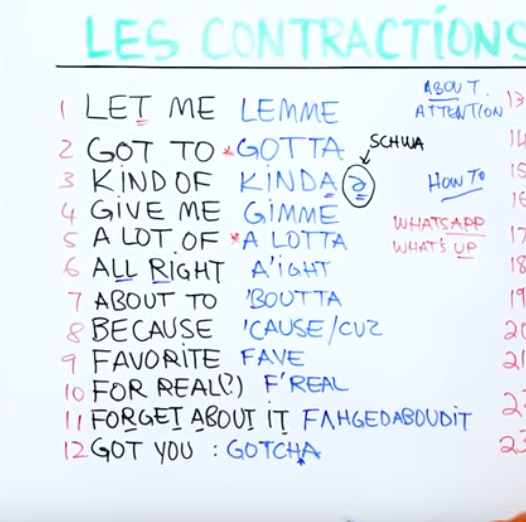 LES CONTRACTIONS
1 LET ME LEMME
2 GOT TO *GOTTA
3 KIND OF KINDA
4 GIVE ME GIMME
5 A LOT OF *A LOTTA
6 ALL RIGHT A'IGHT
7 ABOUT TO 'BOUTTA
8 BECAUSE 'CAUSE/CUZ
9 FAVORITE FAVE
10 FOR REAL(?) F'REAL
11 FORGET ABOUT IT FAHGEDABOUDIT
12 GOT YOU : GOTCHA
SCHWA
ə
ABOUT.
ATTENTION
HOW TO
WHATSAPP
WHAT'S UP
13
14
15
16
17
18
19
20
21
23